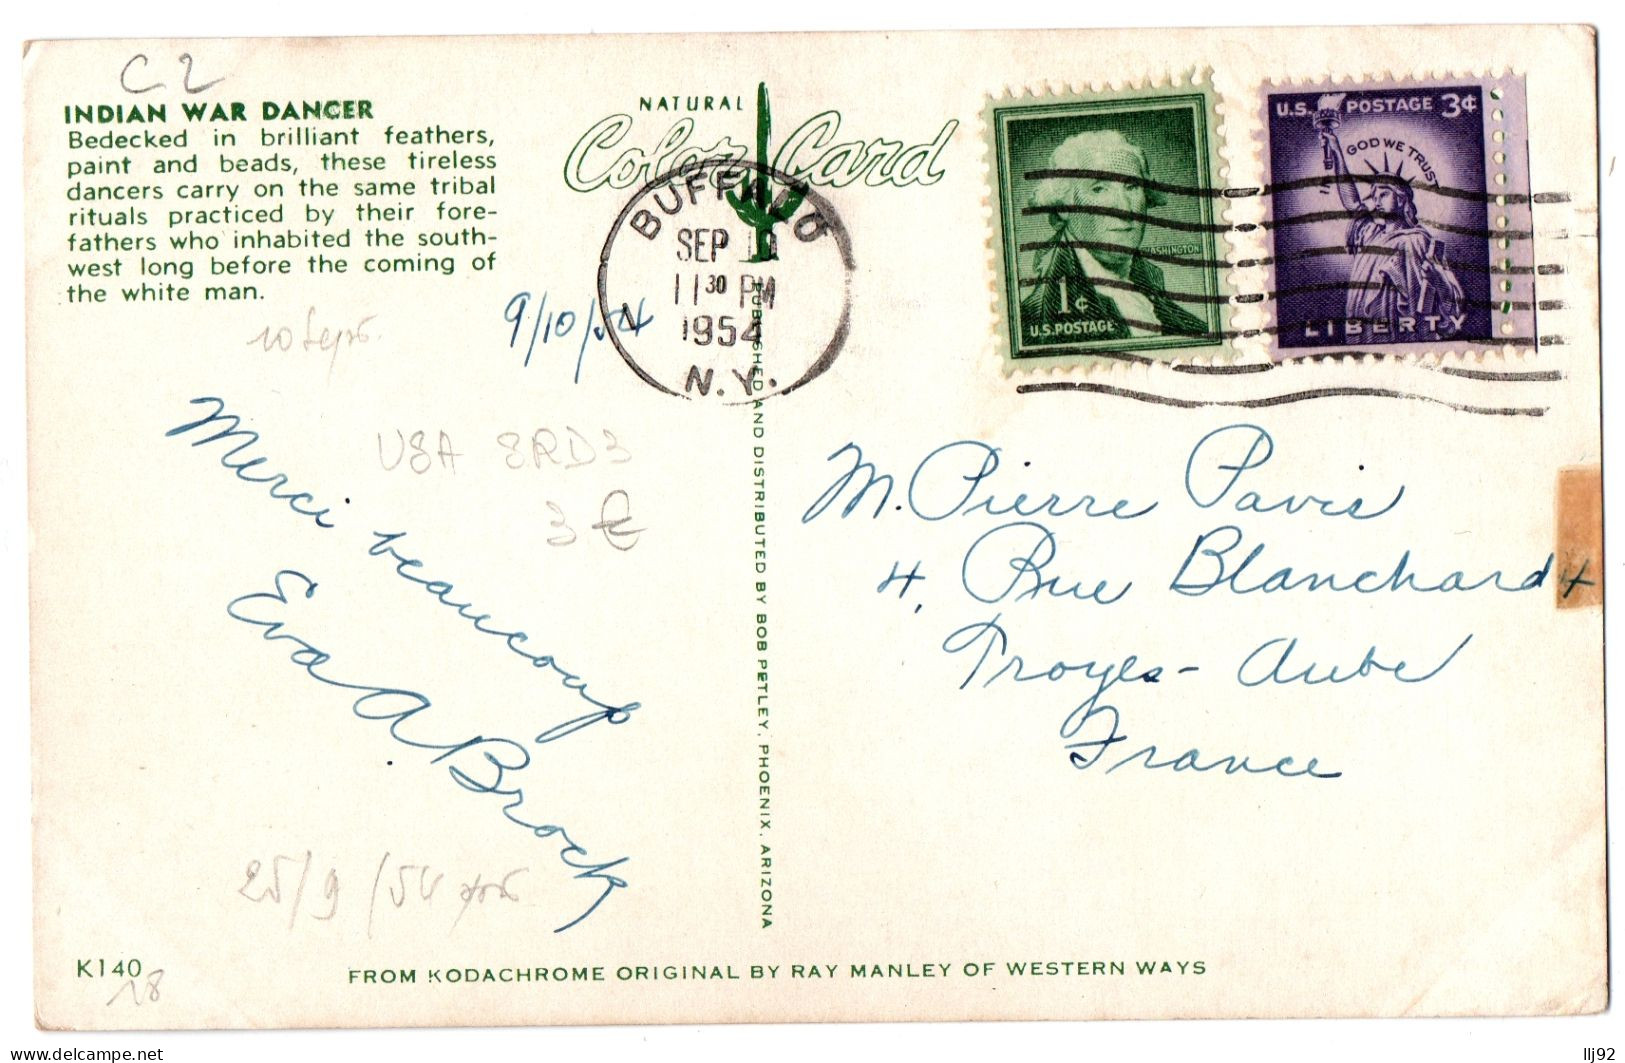 C2
INDIAN WAR DANCER
Bedecked in brilliant feathers,
paint and beads, these tireless
dancers carry on the same tribal
rituals practiced by their fore-
fathers who inhabited the south-
west long before the coming of
the white man.
10 Sept
9/10/54
NATURAL
Color Card
BUFFALO
SEP 10
11 30 PM
1954
N.Y.
1¢
WASHINGTON
U.S. POSTAGE
U.S. POSTAGE 3¢
IN GOD WE TRUST
LIBERTY
Merci beaucoup
Eva A. Brock
USA
3 €
25/9/54
PUBLISHED AND DISTRIBUTED BY BOB PETLEY, PHOENIX, ARIZONA
M. Pierre Pavis
4, Rue Blanchard
Troyes - Aube
France
K140
18
FROM KODACHROME ORIGINAL BY RAY MANLEY OF WESTERN WAYS
www.delcampe.net
llj92